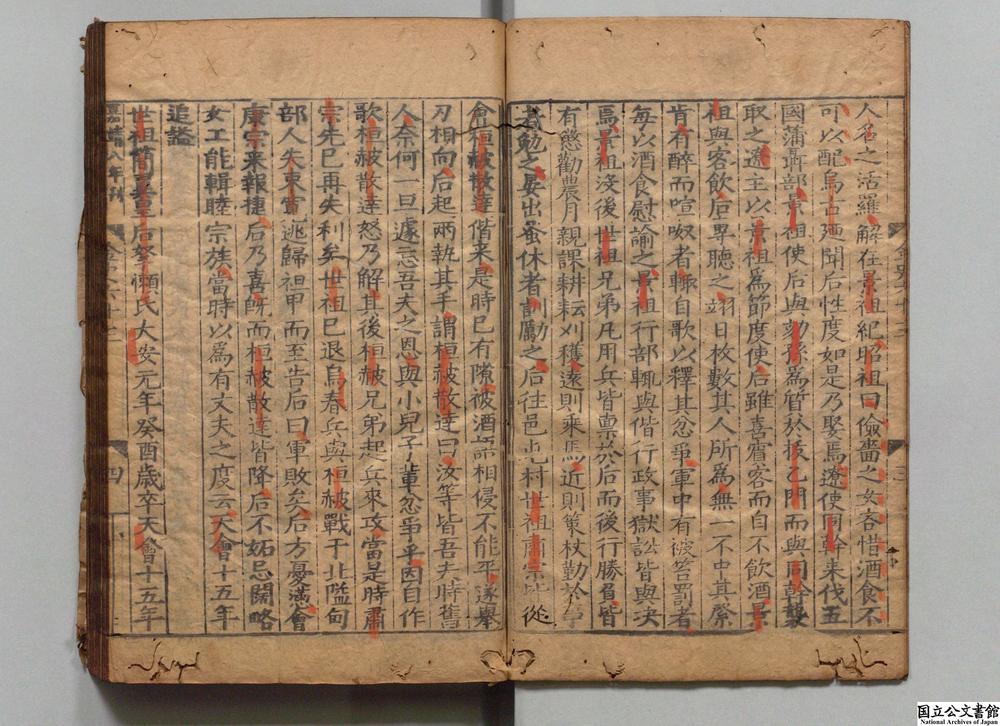 人名之活羅解在景祖紀昭祖曰儉嗇之女吝惜酒食不
可以配烏古廼聞后性度如是乃娶焉遼使同幹來伐五
國蒲聶部景祖使后與劾孫爲質於拔乙門而與同幹襲
取之遼主以景祖爲節度使后雖喜賓客而自不飲酒景
祖與客飲后專聽之翊日枚數其人所爲無一不中其肯
肯有醉而喧呶者輒自歌以釋其忿爭軍中有被笞罰者
每以酒食慰諭之景祖行部輒與偕行政事獄訟皆與決
焉景祖沒後世祖兄弟凡用兵皆禀於后而後行勝負皆
有懲勸農月親課耕耘刈穫遠則乘馬近則策杖勤於事
者勉之晏出蚤休者訓勵之后往邑屯村世祖肅宗皆從
會桓赧散達偕來是時已有隙被酒語相侵不能平遂舉
刃相向后起兩執其手謂桓赧散達曰汝等皆吾夫時舊
人奈何一旦遽忘吾夫之恩與小兒子輩忿爭乎因自作
歌桓赧散達怒乃解其後桓赧兄弟起兵來攻當是時肅
宗先已再失利矣世祖已退烏春兵與桓赧戰于北隘甸
部人失束寬逃歸袒甲而至告后曰軍敗矣后方憂懣會
康宗來報捷后乃喜旣而桓赧散達皆降后不妬忌闊略
女工能輯睦宗族當時以爲有丈夫之度云天會十五年
追謚
世祖簡翼皇后拏懶氏大安元年癸酉歲卒天會十五年
嘉靖八年刊
金史六十三
四
三
国立公文書館
National Archives of Japan